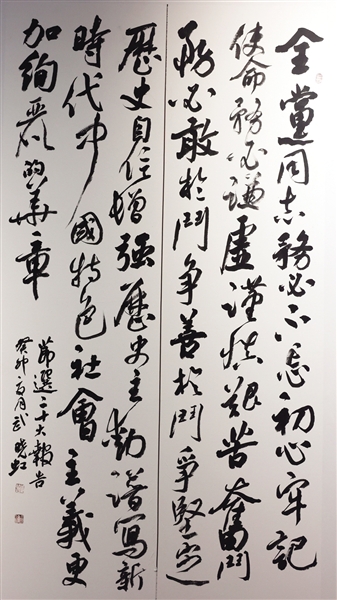 全黨同志務必不忘初心牢記
使命務必謙虛謹慎艱苦奮鬥
務必敢於鬥爭善於鬥爭堅定
歷史自信增強歷史主動譜寫新
時代中國特色社會主義更
加絢麗的華章
節選二十大報告
癸卯月武曉虹